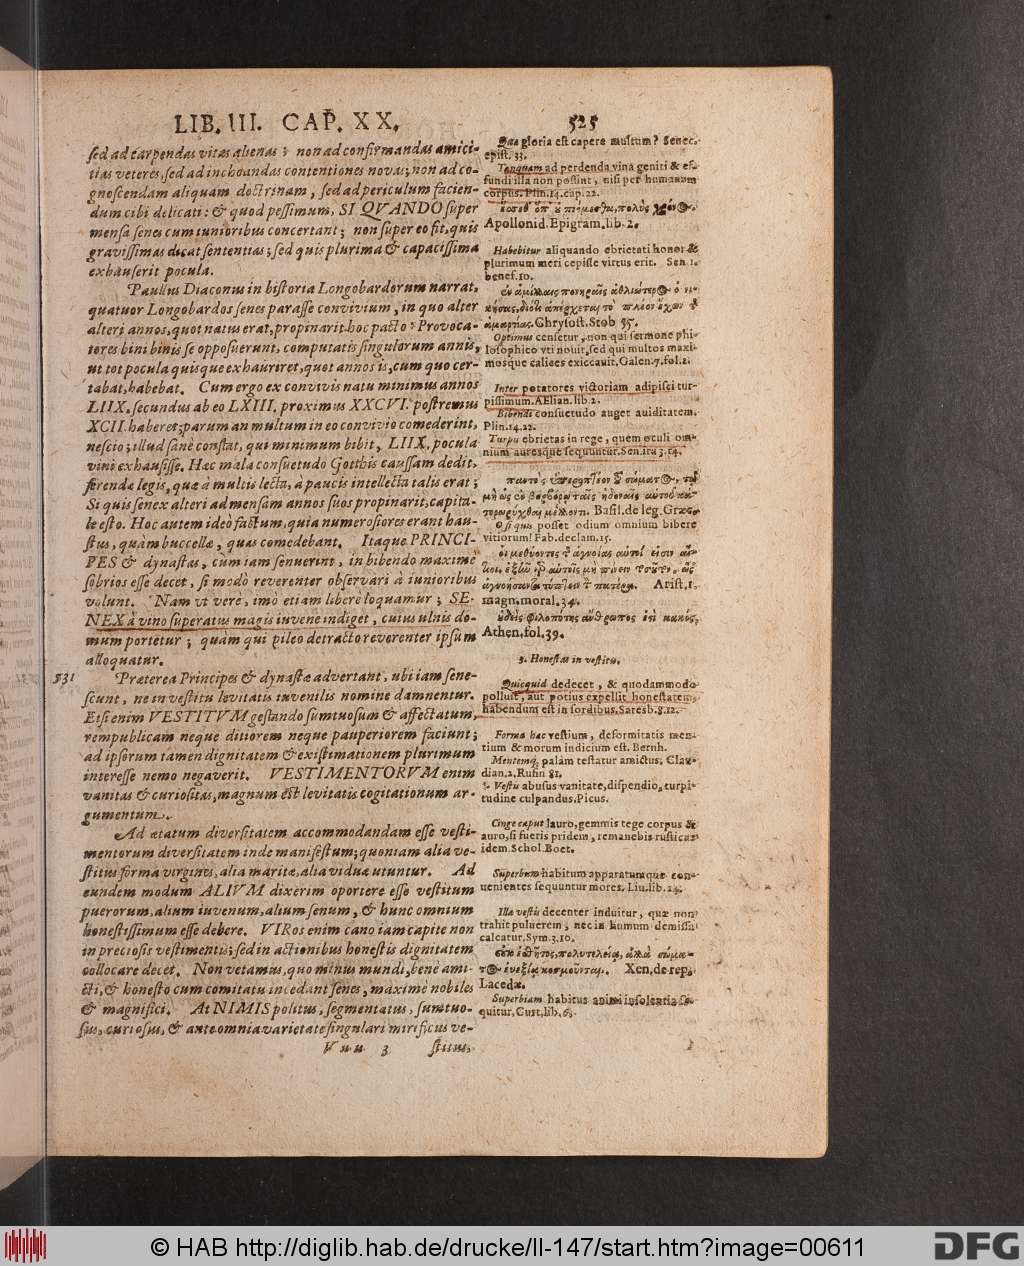 LIB. III. CAP. XX. 525
sed ad carpendas vitas alienas; non ad confirmandas amici-
tias veteres, sed ad inchoandas contentiones novas; non ad co-
gnoscendam aliquam doctrinam, sed ad periculum facien-
dum cibi delicati: & quod pessimum, SI QVANDO super
mensa senes cum iunioribus concertant; non super eo fit, quis
gravissimas dicat sententias; sed quis plurima & capacissima
exhauserit pocula.
Paullus Diaconus in historia Longobardorum narrat,
quatuor Longobardos senes parasse convivium, in quo alter
alteri annos, quot natus erat, propinarit hoc pacto: Provoca-
tores bini binis se opposuerunt, computatis singulorum annis,
ut tot pocula quisque exhauriret, quot annos is, cum quo cer-
tabat, habebat. Cum ergo ex convivis natu minimus annos
LIIX. secundus ab eo LXIII. proximus XXCVI. postremus
XCII. haberet; parum an multum in eo convivio comederint,
nescio; illud sanè constat, qui minimum bibit, LIIX. pocula
vini exhausisse. Hæc mala consuetudo Gotthis caussam dedit,
ferendæ legis, quæ à multis lecta, à paucis intellecta talis erat;
Si quis senex alteri ad mensam annos suos propinarit, capita-
le esto. Hoc autem ideò factum, quia numerosiores erant hau-
stus, quàm buccellæ, quas comedebant. Itaque PRINCI-
PES & dynastas, cum iam senuerint, in bibendo maximè
sobrios esse decet, si modò reverenter observari à iunioribus
volunt. Nam vt verè, imò etiam liberè loquamur; SE-
NEX à vino superatus magis iuvene indiget, cuius ulnis do-
mum portetur; quàm qui pileo detracto reverenter ipsum
alloquatur.
531 Præterea Principes & dynastæ advertant, ubi iam sene-
scunt, ne in vestitu levitatis iuvenilis nomine damnentur.
Etsi enim VESTITVM gestando sumtuosum & affectatum,
rempublicam neque ditiorem neque pauperiorem faciunt;
ad ipsorum tamen dignitatem & existimationem plurimum
interesse nemo negaverit. VESTIMENTORVM enim
vanitas & curiositas, magnum est levitatis cogitationum ar-
gumentum.
Ad ætatum diversitatem accommodandam esse vesti-
mentorum diversitatem inde manifestum; quoniam alia ve-
stitus forma virgines, alia maritæ, alia viduæ utuntur. Ad
eundem modum ALIVM dixerim oportere esse vestitum
puerorum, alium iuvenum, alium senum, & hunc omnium
honestissimum esse debere. VIRos enim cano iam capite non
in preciosis vestimentis; sed in actionibus honestis dignitatem
collocare decet. Non vetamus, quo minus mundi, bene ami-
cti, & honesto cum comitatu incedant senes, maximè nobiles
& magnifici. At NIMIS politus, segmentatus, sumtuo-
sus, curiosus, & ante omnia varietate singulari mirificus ve-
Vuu 3 stitus,
Quæ gloria est capere multum? Senec.
epist. 33.
Tanquam ad perdenda vina geniti & ef-
fundi illa non possint, nisi per humanum
corpus. Plin. 14. cap. 22.
Apollonid. Epigram. lib. 2.
Habebitur aliquando ebrietati honor &
plurimum meri cepisse virtus erit. Sen. 1.
benef. 10.
Chrysost. Stob. 35.
Optimus censetur, non qui sermone phi-
losophico vti nouit, sed qui multos maxi-
mosque calices exiccauit, Galen. 7. fol. 1.
Inter potatores victoriam adipisci tur-
pissimum. AElian. lib. 2.
Bibendi consuetudo auget auiditatem.
Plin. 14. 22.
Turpis ebrietas in rege, quem oculi om-
nium auresque sequuntur. Sen. ira 3. 14.
Basil. de leg. Græc.
O si quis posset odium omnium bibere
vitiorum! Fab. declam. 15.
Arist. 1.
magn. moral. 34.
οὐδεὶς φιλοπότης ἄνθρωπος ἐστὶ κακός,
Athen. fol. 39.
3. Honestas in vestitu.
Quicquid dedecet, & quodammodo
polluit, aut potius expellit honestatem,
habendum est in sordibus. Saresb. 8. 12.
Forma hæc vestium, deformitatis men-
tium & morum indicium est. Bernh.
Mentemq; palàm testatur amictus, Clau-
dian. 2. Rufin 81.
Vestis abusus vanitate, dispendio, turpi-
tudine culpandus, Picus.
Cinge caput lauro, gemmis tege corpus &
auro, si fueris pridem, remanebis rusticus
idem. Schol. Boet.
Superbum habitum apparatumque con-
uenientes sequuntur mores. Liu. lib. 24.
Illa vestis decenter induitur, quæ non
trahit puluerem, nec in humum demissa
calcatur. Sym. 3. 10.
Xen. de rep.
Lacedæ.
Superbiam habitus animi insolentia se-
quitur, Curt. lib. 6.
© HAB http://diglib.hab.de/drucke/ll-147/start.htm?image=00611
DFG